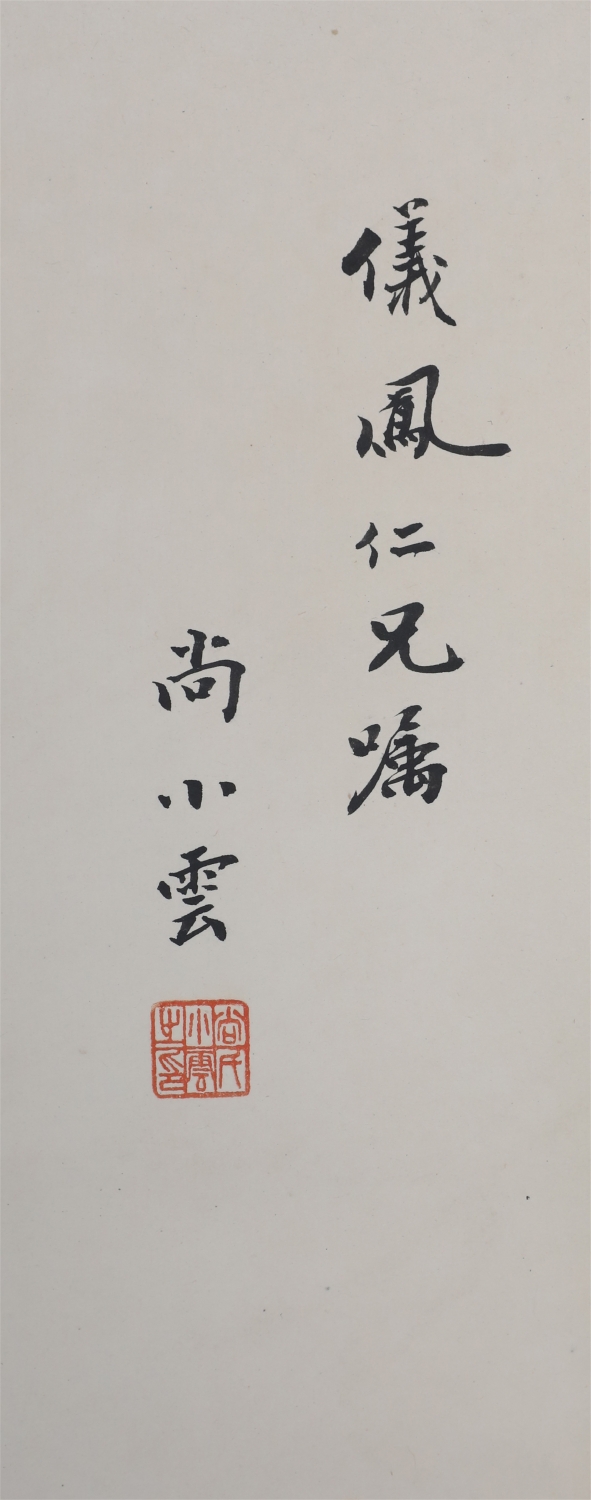 儀鳳仁兄嘱
尚小雲
尚氏小雲之印